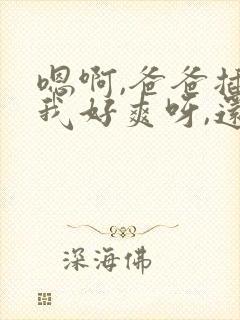 嗯啊,爸爸
我好爽呀,
深海佛